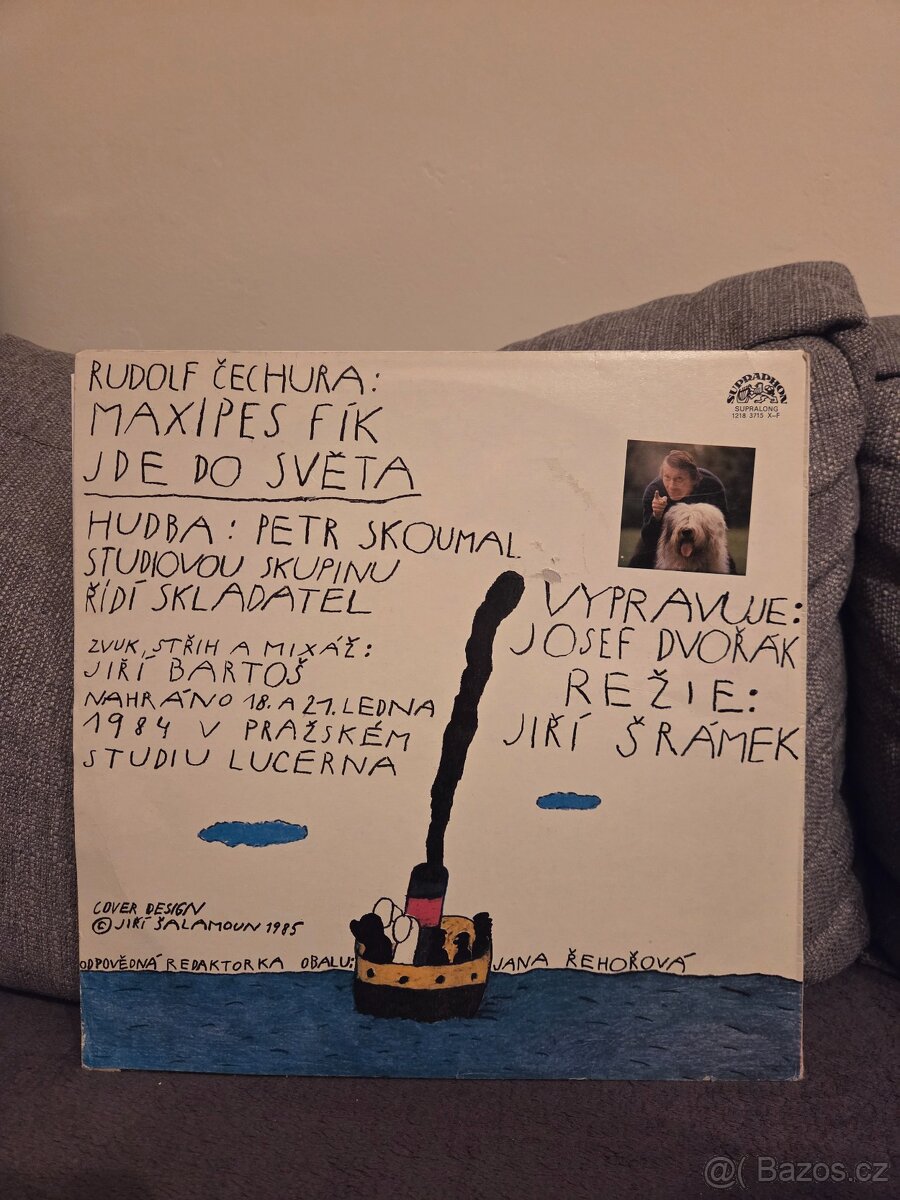 RUDOLF ČECHURA:
MAXIPES FÍK
JDE DO SVĚTA
HUDBA: PETR SKOUMAL
STUDIOVOU SKUPINU
ŘÍDÍ SKLADATEL
ZVUK, STŘIH A MIXÁŽ:
JIŘÍ BARTOŠ
NAHRÁNO 18. A 21. LEDNA
1984 V PRAŽSKÉM
STUDIU LUCERNA
SUPRAPHON
SUPRALONG
1218 3715 X-F
VYPRAVUJE:
JOSEF DVOŘÁK
REŽIE:
JIŘÍ ŠRÁMEK
COVER DESIGN
© JIŘÍ ŠALAMOUN 1985
ODPOVĚDNÁ REDAKTORKA OBALU: JANA ŘEHOŘOVÁ
@( Bazos.cz